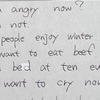 angry now?
not.
people enjoy winter
want to eat beef
bed at ten ev
want to cry now